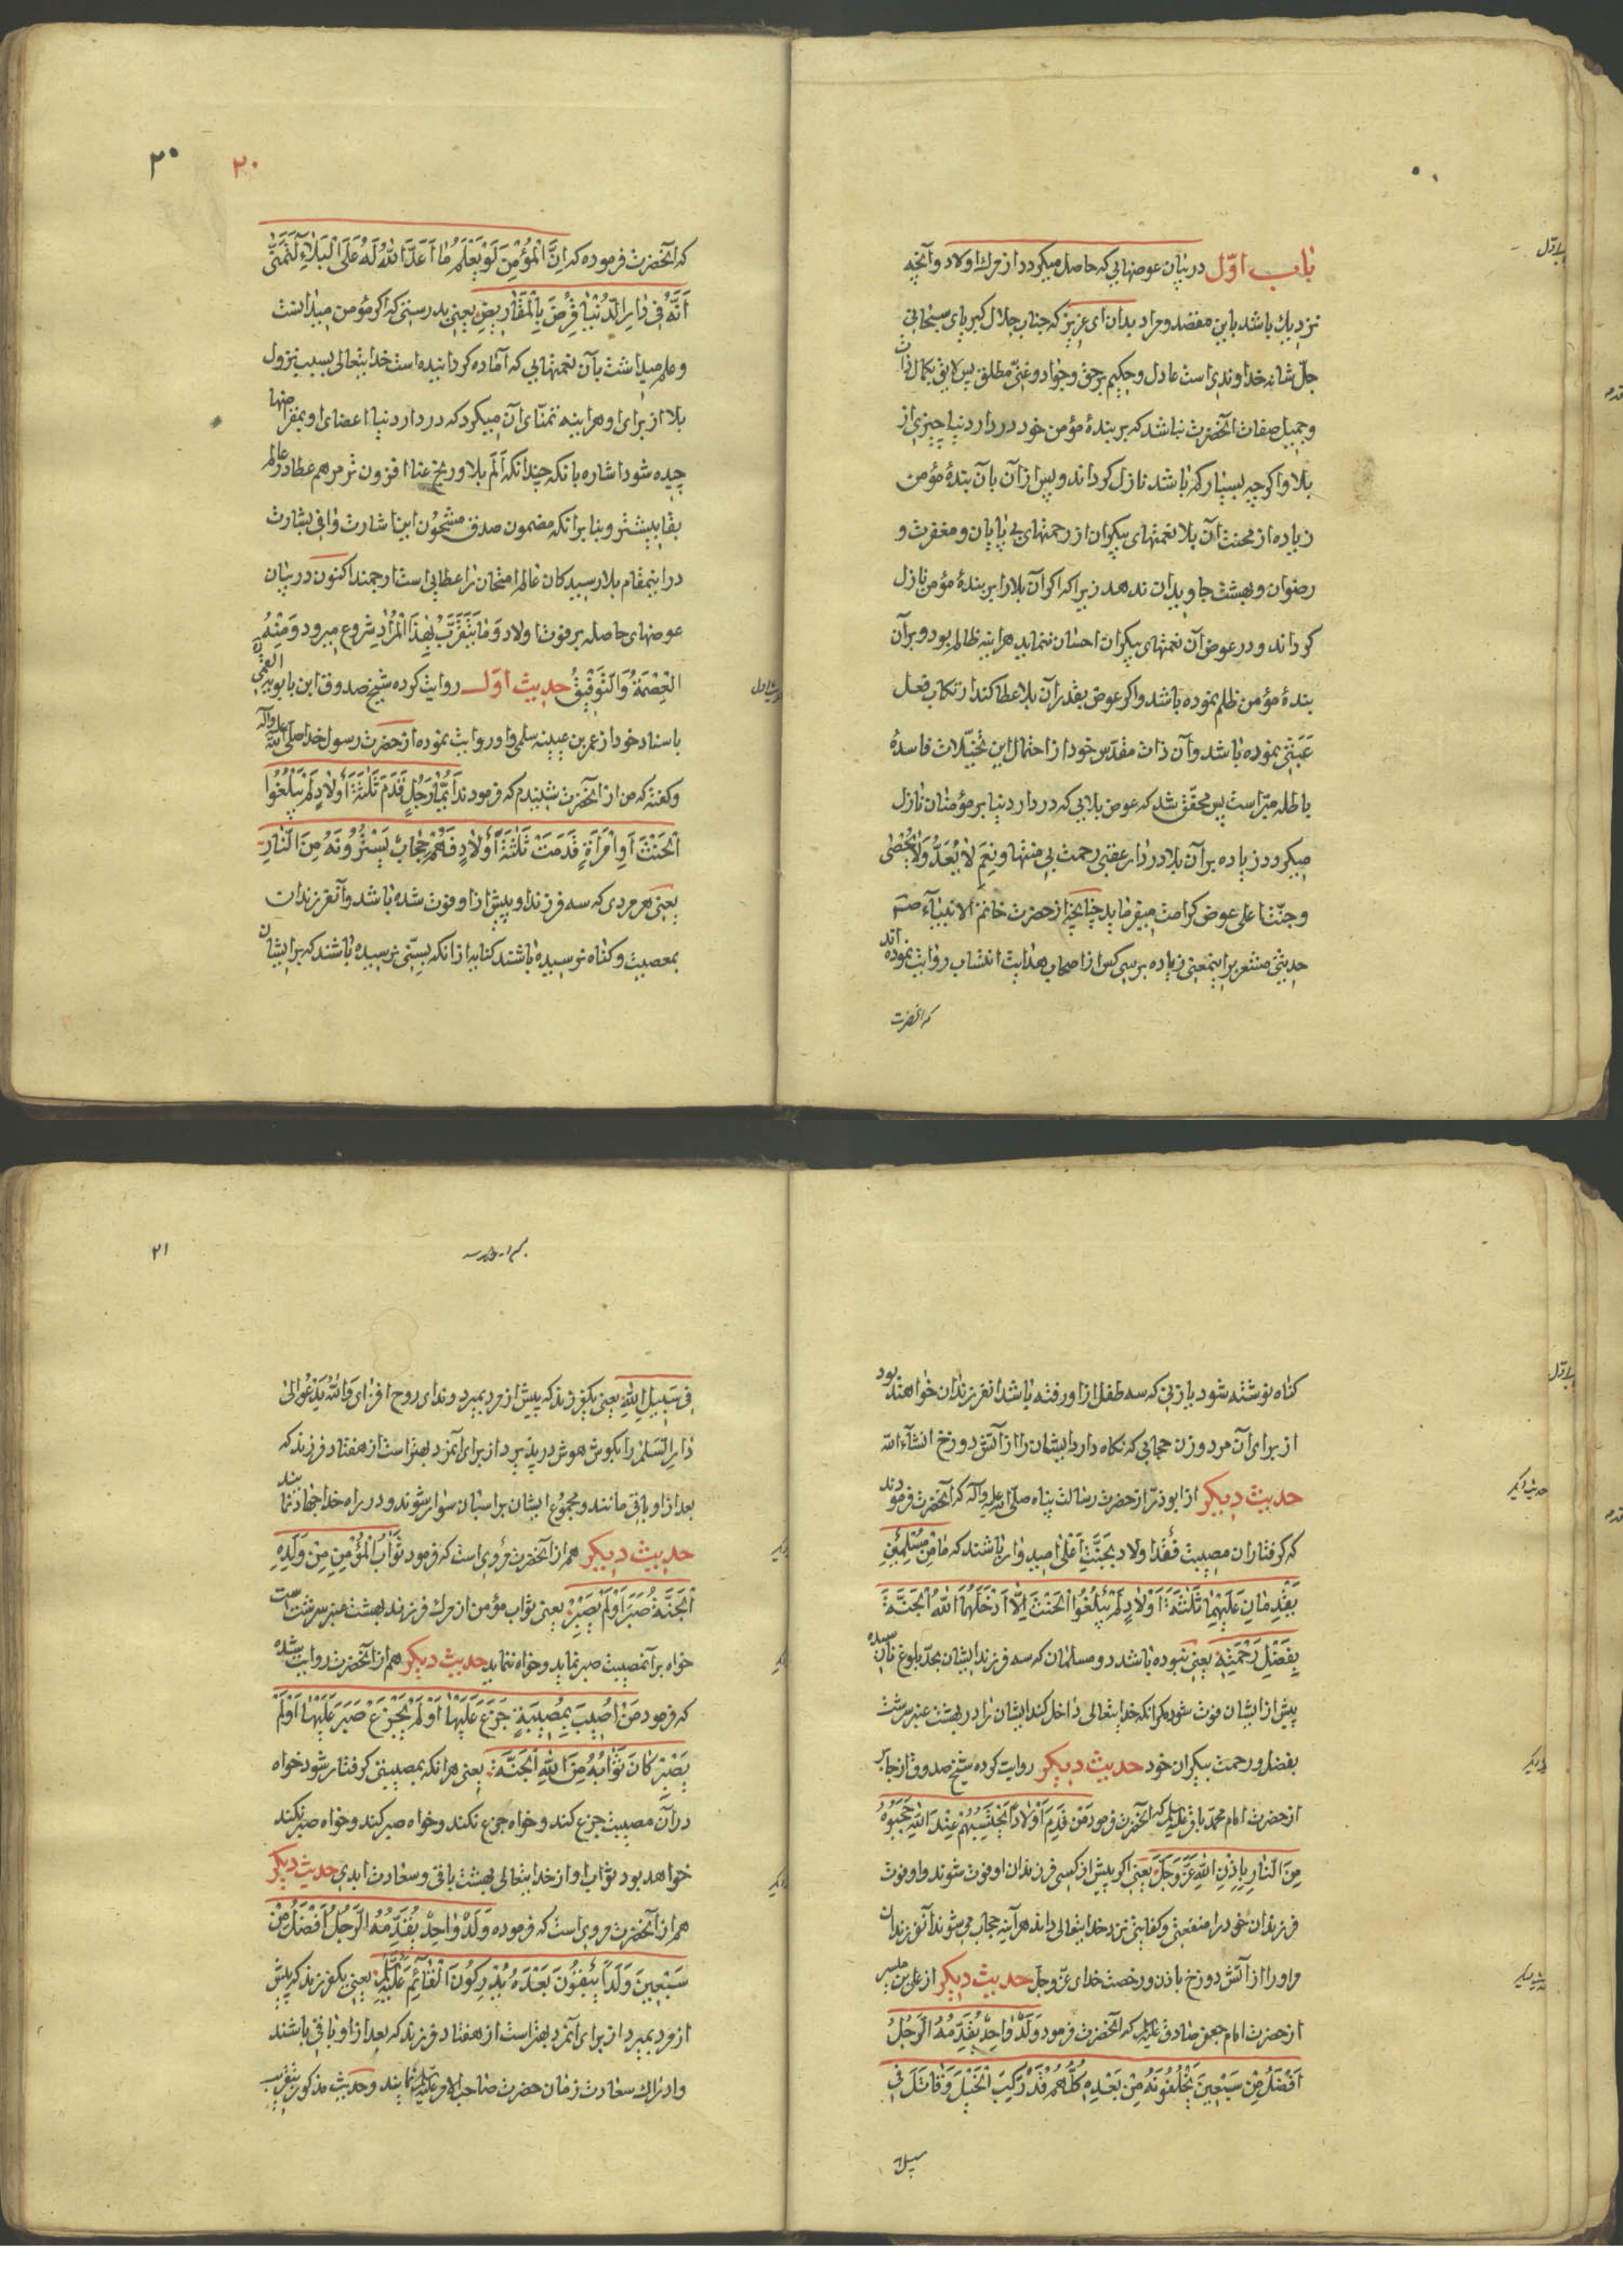 باب اوّل در بیان عوضهایی که حاصل میکردد از مرك اولاد و آنچه
نزدیك باشد باین مقصد و مراد بدان ای عزیز که جناب جلال کبریای سبحانی
جلّ شانه خداوندی است عادل و حکیم بر حق و جواد و غنیّ مطلق پس لایق بکمال ذات
و جمیل صفات آنحضرت نباشد که بر بندهٔ مؤمن خود در دار دنیا چیزی از
بلا و اکرچه بسیار کم باشد نازل کرداند و پس از آن بآن بندهٔ مؤمن
زیاده از محنت آن بلا نعمتهای بیکران از رحمتهای بی پایان و مغفرت و
رضوان و بهشت جاویدان ندهد زیرا که اکر آن بلا را بر بندهٔ مؤمن نازل
کرداند و در عوض آن نعمتهای بیکران احسان ننماید هراینه ظالم بود و بر آن
بندهٔ مؤمن ظلم نموده باشد و اکر عوض بقدر آن بلا عطا کند ارتکاب فعل
عَبَثی نموده باشد و آن ذات مقدّس خود از احتمال این تخیّلات فاسدهٔ
باطله مبرّاست پس محقّق شد که عوض بلایی که در دار دنیا بر مؤمنان نازل
میکردد زیاده بر آن بلا در دار عقبی رحمت بی منتها و نِعَمِ لا یُعَدُّ وَلا یُحْصٰی
و جنّت اعلی عوض کرامت میفرماید چنانچه از حضرت خاتم الانبیآء ص
حدیثی مشعر بر اینمعنی زیاده بر سی کس از اصحاب هدایت انتساب روایت نموده اند
که انحضرت
٢٠ ٢٠
که آنحضرت فرموده که اِنَّ الْمُؤْمِنَ لَوْ یَعْلَمُ مٰا اَعَدَّ اللّٰهُ لَهُ عَلَی الْبَلاٰءِ لَتَمَنّٰی
اَنَّهُ فی دٰارِ الدُّنْیٰا قُرِضَ بِالْمَقٰاریضِ یعنی بدرستی که اکر مؤمن میدانست
و علم میداشت بآن نعمتهایی که آماده کردانیده است خدایتعالی بسبب نزول
بلا از برای او هراینه تمنّای آن میکرد که در دار دنیا اعضای او بمقراضها
چیده شود اشاره بانکه چندانکه اَلَم بلا و رنج عنا افزون تر مرهم عطا در عالم
بقا بیشتر و بنا برانکه مضمون صدق مشحون این اشارت وافی بشارت
در اینمقام بلا رسیدکان عالم امتحان را عطایی است ارجمند اکنون در بیان
عوضهای حاصله بر فوت اولاد وَمٰا یَتَقَرَّبُ بِهٰذَا الْمُرٰادِ شروع میرود وَمِنْهُ
الْعِصْمَةُ وَالتَّوْفِیقُ حدیث اوّل روایت کرده شیخ صدوق ابن بابویه القمی
باسناد خود از عمر بن عیینه سلمی و او روایت نموده از حضرت رسول خدا صلّی اللّه علیه وآله
و کفته که من از آنحضرت شنیدم که فرمودند اَیُّمٰا رَجُلٍ قَدَّمَ ثَلٰثَةَ اَوْلاٰدٍ لَمْ یَبْلُغُوا
الْحِنْثَ اَوِ امْرَأَةٍ قَدَّمَتْ ثَلٰثَةَ اَوْلاٰدٍ فَهُمْ حِجٰابٌ یَسْتُرُونَهُ مِنَ النّٰارِ
یعنی هر مردی که سه فرزند او پیش از او فوت شده باشد و آنفرزندان
بمعصیت و کناه نرسیده باشند کنایه از آنکه بسنّی نرسیده باشند که بر ایشان
کناه نوشته شود یا زنی که سه طفل از او رفته باشد انفرزندان خواهند بود
از برای آن مرد و زن حجابی که نکاه دارد ایشان را از آتش دوزخ انشآءاللّه
حدیث دیکر از ابوذر از حضرت رسالت پناه صلّی اللّه علیه وآله که آنحضرت فرمودند
که کرفتاران مصیبت فقد اولاد بجنّت اعلی امیدوار باشند که مٰا مِنْ مُسْلِمَیْنِ
یُقَدِّمٰانِ عَلَیْهِمٰا ثَلٰثَةَ اَوْلاٰدٍ لَمْ یَبْلُغُوا الْحِنْثَ اِلّاٰ اَدْخَلَهُمَا اللّٰهُ الْجَنَّةَ
بِفَضْلِ رَحْمَتِهِ یعنی نبوده باشد دو مسلمان که سه فرزند ایشان بحدّ بلوغ نارسیده
پیش از ایشان فوت شود مکر انکه خدایتعالی داخل کند ایشان را در بهشت عنبر سرشت
بفضل و رحمت بیکران خود حدیث دیکر روایت کرده شیخ صدوق از جابر
از حضرت امام محمّد باقر علیه السلام که آنحضرت فرمود مَنْ قَدَّمَ اَوْلاٰداً یَحْتَسِبُهُمْ عِنْدَ اللّٰهِ حَجَبُوهُ
مِنَ النّٰارِ بِاِذْنِ اللّٰهِ عَزَّ وَجَلَّ یعنی اکر پیش از کسی فرزندان او فوت شوند و او فوت
فرزندان خود را منفعتی و کفایتی نزد خدایتعالی داند هرآینه حجاب می شوند آنفرزندان
مر او را از آتش دوزخ باذن و رخصت خدای عزّ وجلّ حدیث دیکر از علی بن میسر
از حضرت امام جعفر صادق علیه السلام که آنحضرت فرمود وَلَدٌ وٰاحِدٌ یُقَدِّمُهُ الرَّجُلُ
اَفْضَلُ مِنْ سَبْعِینَ یَخْلُفُونَهُ مِنْ بَعْدِهِ کُلُّهُمْ قَدْ رَکِبَ الْخَیْلَ وَقٰاتَلَ فی
سبیل
٢١
فی سَبِیلِ اللّٰهِ یعنی یکفرزند که پیش از مرد بمیرد و ندای روح افزای وَاللّٰهُ یَدْعُو اِلیٰ
دٰارِ السَّلٰمِ را بکوش هوش درپذیرد از برای آنمرد بهتر است از هفتاد فرزند که
بعد از او باقی مانند و مجموع ایشان بر اسبان سوار شوند و در راه خدا جهاد نمایند
حدیث دیکر هم از آنحضرت مروی است که فرمود ثَوٰابُ الْمُؤْمِنِ مِنْ وَلَدِهِ
الْجَنَّةُ صَبَرَ اَوْ لَمْ یَصْبِرْ یعنی ثواب مؤمن از مرك فرزند بهشت عنبر سرشت است
خواه بر آنمصیبت صبر نماید و خواه ننماید حدیث دیکر هم از آنحضرت روایت شده
که فرمود مَنْ اُصِیبَ بِمُصِیبَةٍ جَزَعَ عَلَیْهٰا اَوْ لَمْ یَجْزَعْ صَبَرَ عَلَیْهٰا اَوْ لَمْ
یَصْبِرْ کٰانَ ثَوٰابُهُ مِنَ اللّٰهِ الْجَنَّةَ یعنی هر انکه بمصیبتی کرفتار شود خواه
در آن مصیبت جزع کند و خواه جزع نکند و خواه صبر کند و خواه صبر نکند
خواهد بود ثواب او از خدایتعالی بهشت باقی و سعادت ابدی حدیث دیکر
هم از آنحضرت مروی است که فرموده وَلَدٌ وٰاحِدٌ یُقَدِّمُهُ الرَّجُلُ اَفْضَلُ مِنْ
سَبْعِینَ وَلَداً یَبْقُونَ بَعْدَهُ یُدْرِکُونَ الْقٰائِمَ عَلَیْهِ السَّلٰمُ یعنی یکفرزند که پیش
از مرد بمیرد از برای آنمرد بهتر است از هفتاد فرزند که بعد از او باقی باشند
و ادراك سعادت زمان حضرت صاحب الامر علیه السلام نمایند و حدیث مذکور بتقریب